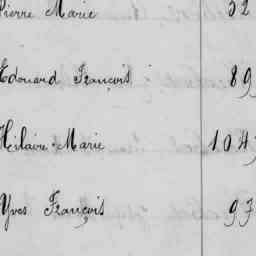 Pierre Marie 52
Edouard François 89
Hilaire-Marie 104
Yves François 93